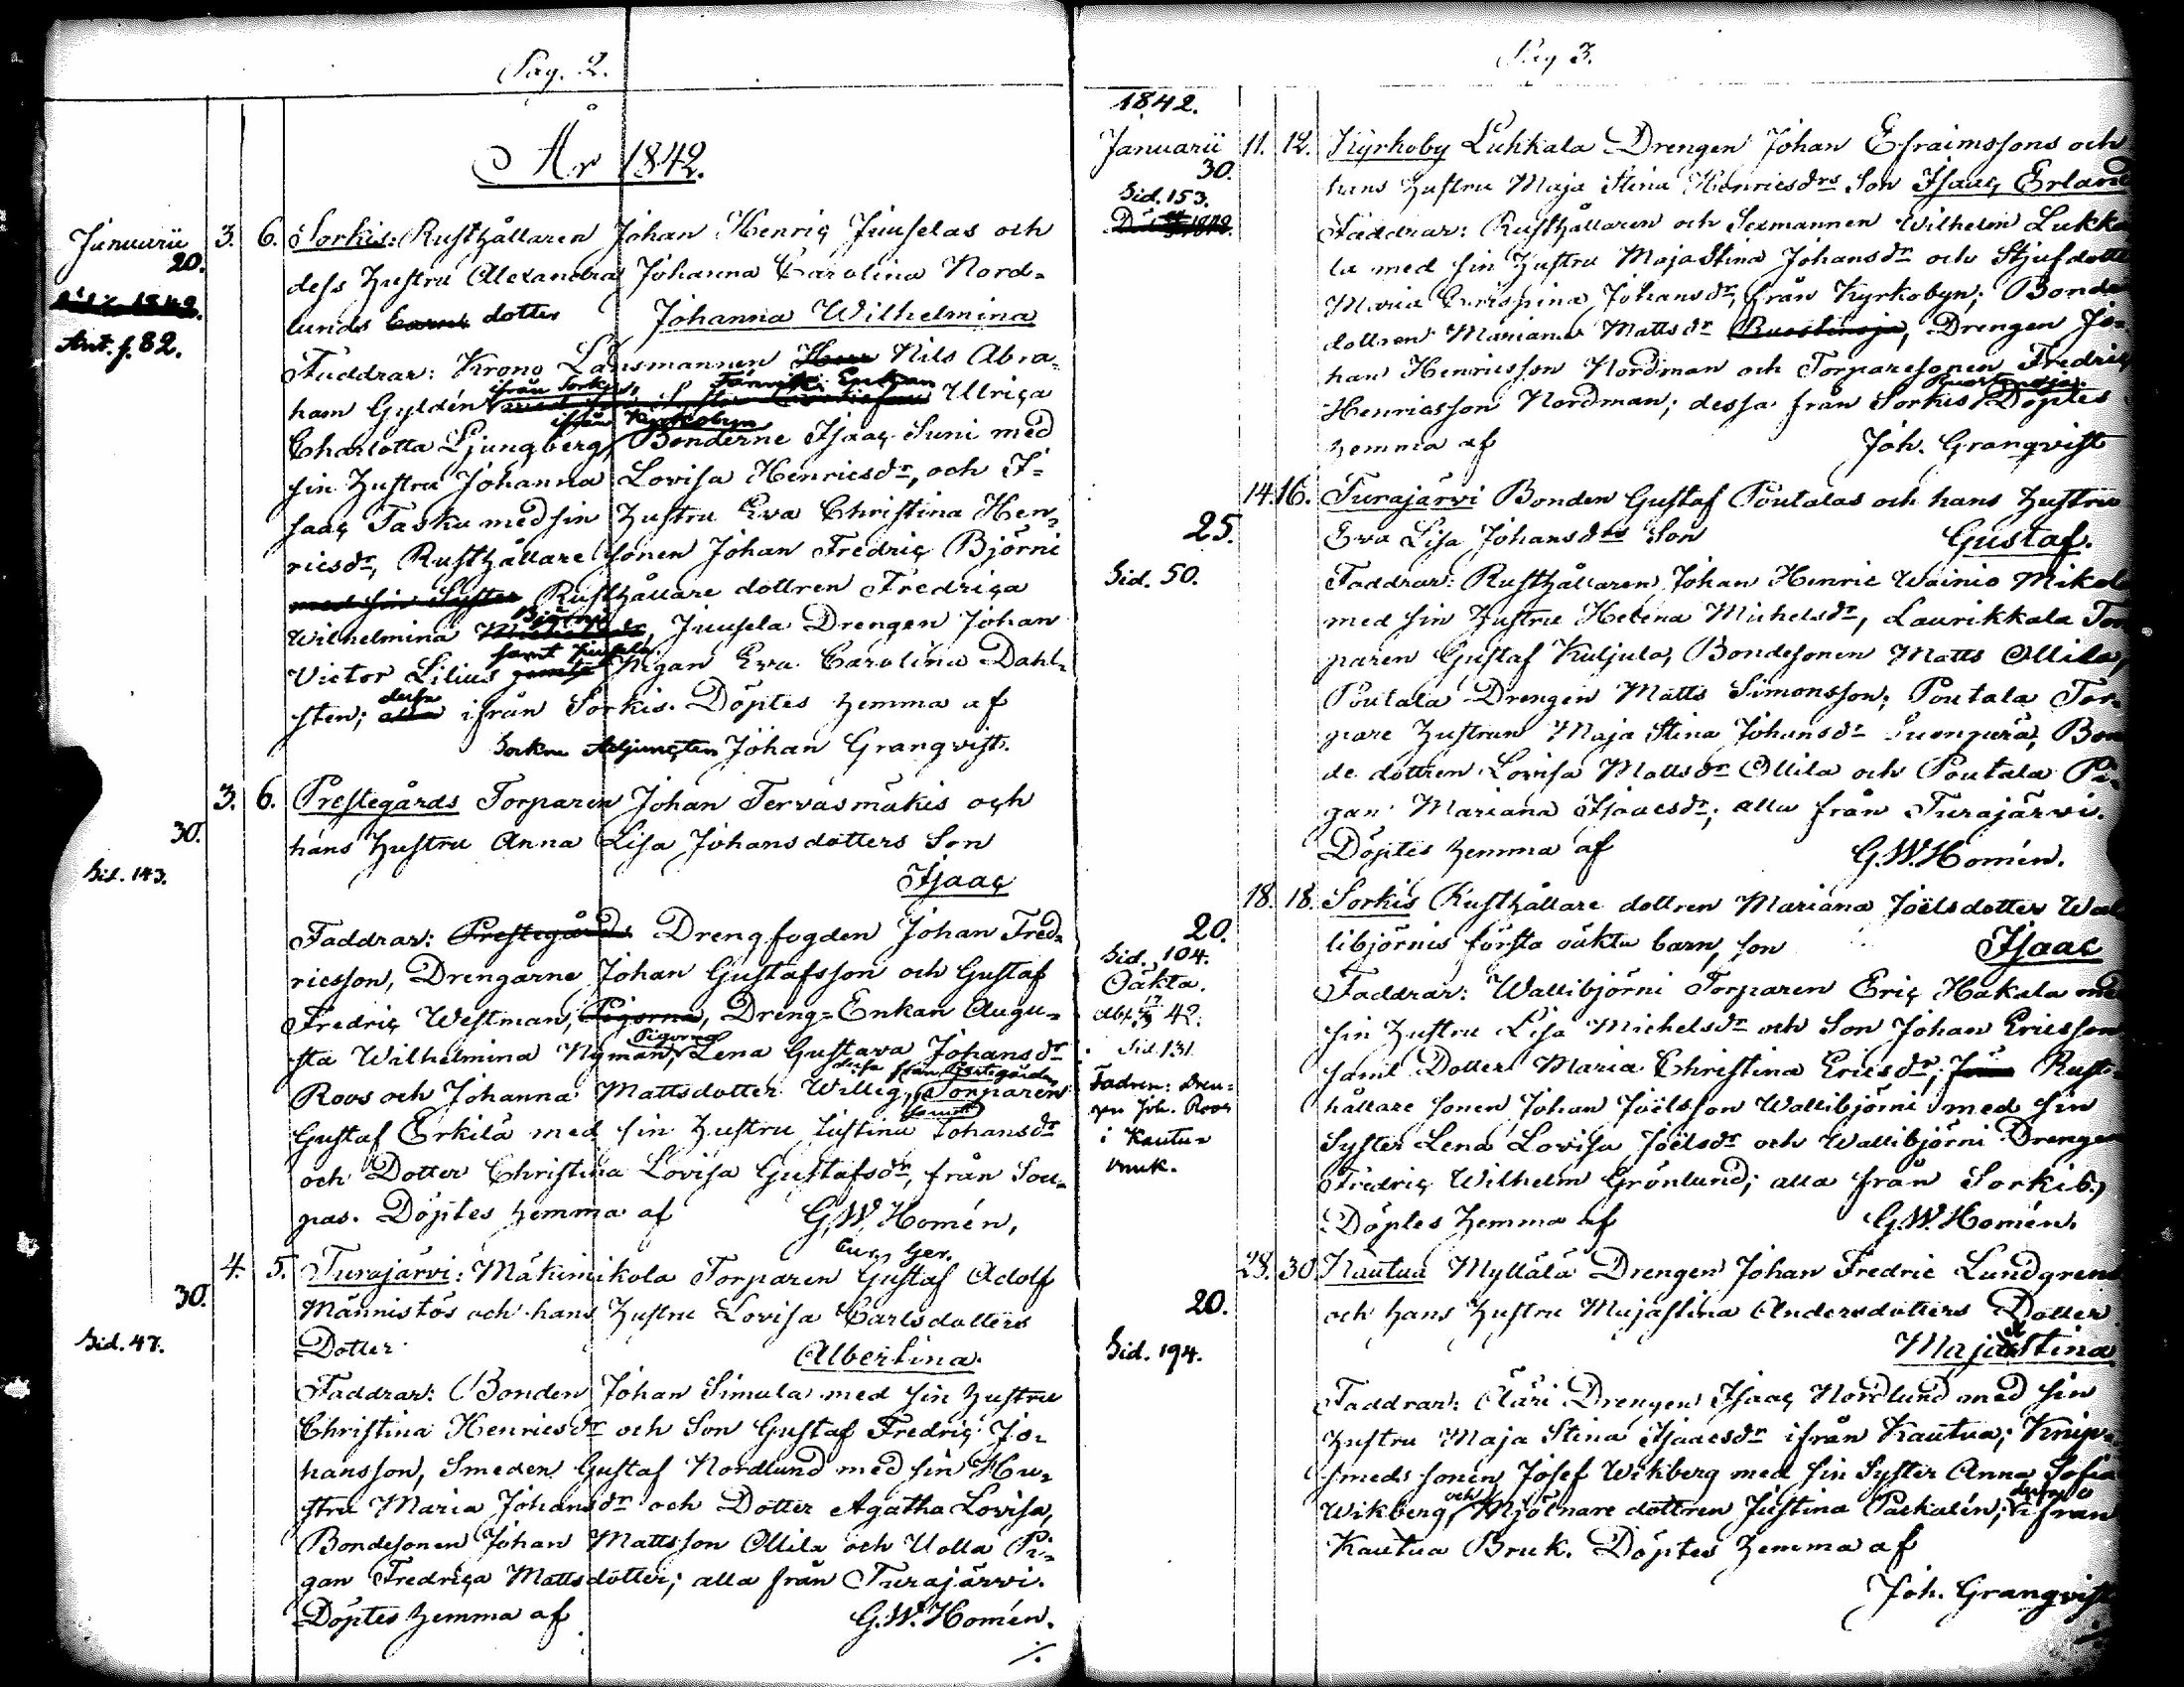 Pag. 2.
År 1842.
Januarii 3. 6. Sorkis: Rusthållaren Johan Henric Juuselas och
20.
dess Hustru Alexandra Johanna Carolina Nord-
lunds barns dotter Johanna Wilhelmina
Ant. f. 82.
Faddrar: Krono Länsmannen Herr Nils Abra-
ham Gyldén ifrån Sorkis, Enkan Ulrica
ifrån Kyrkobyn
Charlotta Ljungberg, Bönderne Isaac Suni med
sin Hustru Johanna Lovisa Henricsdr, och I-
saac Tasku med sin Hustru Eva Christina Hen-
ricsdr, Rusthållare sonen Johan Fredric Björni
med sin Syster Rusthållare dottren Fredrica
Björni
Wilhelmina Juusela Drengen Johan
samt Juusela
Victor Lilius Pigan Eva Carolina Dahl-
dessa
sten; alla ifrån Sorkis. Döptes hemma af
Sockne Adjuncten Johan Granqvist.
3. 6. Prestegårds Torparen Johan Tervasmäkis och
30.
hans Hustru Anna Lisa Johansdotters Son
Sid. 143.
Isaac
Faddrar: Prestegårds Drengfogden Johan Fred-
ricsson, Drengarne Johan Gustafsson och Gustaf
Fredric Westman, Pigorna, Dreng-Enkan Augu-
Pigorna
sta Wilhelmina Nyman, Lena Gustava Johansdr
dessa från Prestegården
Roos och Johanna Mattsdotter Willig, Torparen
Gustaf Erkilä med sin Hustru Justina Johansdr
och Dotter Christina Lovisa Gustafsdr, från Sou-
pas. Döptes hemma af G.W. Homén,
Cur. Ger.
4. 5. Turajärvi: Mäkimikola Torparen Gustaf Adolf
30.
Männistös och hans Hustru Lovisa Carlsdotters
Sid. 47.
Dotter Albertina.
Faddrar: Bonden Johan Simula med sin Hustru
Christina Henricsdr och Son Gustaf Fredric Jo-
hansson, Smeden Gustaf Nordlund med sin Hu-
stru Maria Johansdr och Dotter Agatha Lovisa,
Bondesonen Johan Mattsson Ollila och Uolla Pi-
gan Fredrica Mattsdotter; alla från Turajärvi.
Döptes hemma af G.W. Homén.
Pag 3.
1842.
Januarii 11. 12. Kyrkoby Luhkala Drengen Johan Efraimssons och
30.
hans Hustru Maja Stina Henricsdrs Son Isaac Erland
Sid. 153.
Faddrar: Rusthållaren och Sexmannen Wilhelm Lukka
la med sin Hustru Maja Stina Johansdr och Stjufdottr
Maria Johansdr, från Kyrkobyn; Bonde
dottren Mariana Mattsdr Ruostinoja, Drengen Jo-
han Henricsson Nordman och Torparesonen Fredric
Henricsson Nordman; dessa från Sorkis Döptes
hemma af Joh. Granqvist
14. 16. Turajärvi Bonden Gustaf Poutalas och hans Hustru
25.
Eva Lisa Johansdrs Son Gustaf.
Sid. 50.
Faddrar: Rusthållaren Johan Henric Wainio Mikol
med sin Hustru Helena Michelsdr, Laurikkala Tor
paren Gustaf Kuljula, Bondesonen Matts Ollila,
Poutala Drengen Matts Simonsson, Poutala Tor-
pare Hustrun Maja Stina Johansdr Suonperä, Bon
de dottren Lovisa Mattsdr Ollila och Poutala Pi-
gan Mariana Isaacsdr; alla från Turajärvi.
Döptes hemma af G.W. Homén.
18. 18. Sorkis Rusthållare dottren Mariana Joëlsdotter Wal
20.
libjörnis första oäkta barn, son Isaac
Sid. 104.
Oäkta.
Faddrar: Wallibjörni Torparen Eric Hakala med
sin Hustru Lisa Michelsdr och Son Johan Ericsson
Sid. 131.
samt Dotter Maria Christina Ericsdr, Rust-
Fadren: Dren-
gen Joh. Roos
i Kautua
bruk.
hållare sonen Johan Joëlsson Wallibjörni med sin
Syster Lena Lovisa Joëlsdr och Wallibjörni Drengen
Fredric Wilhelm Grönlund; alla från Sorkis.
Döptes hemma af G.W. Homén.
28. 30. Kautua Myllälä Drengen Johan Fredric Lundgrens
20.
och hans Hustru Majastina Andersdotters Dotter
Sid. 194.
Maja Stina
Faddrar: Drengen Isaac Nordlund med sin
Hustru Maja Stina Isaacsdr ifrån Kautua; Knip-
smeds sonen Josef Wikberg med sin Syster Anna Sofia
och dessa
Wikberg, Mjölnare dottren Justina Paskalén; ifrån
Kautua Bruk. Döptes hemma af
Joh. Granqvist